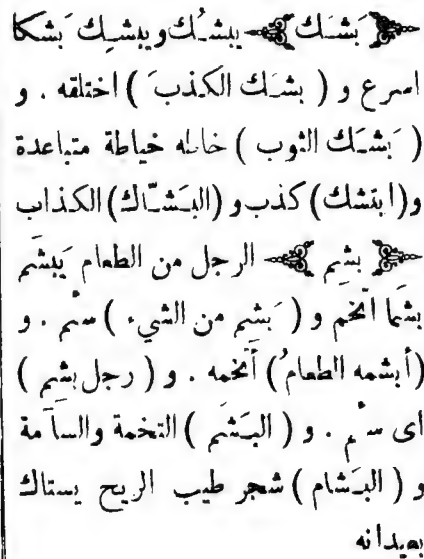 ﴿ بَشَك ﴾ يبشُك ويبشِك بَشكا
اسرع و ( بشَك الكذبَ ) اختلقه . و
( بَشَك الثوب ) خاطه خياطة متباعدة
و ( ابتشك ) كذب و ( البَشّاك ) الكذاب
﴿ بشِم ﴾ الرجل من الطعام يَبشَم
بشَما اتخم و ( بَشِم من الشيء ) سئم . و
( أبشمه الطعامُ ) أتخمه . و ( رجل بشِم )
اى سئم . و ( البَشَم ) التخمة والسآمة
و ( البَشام ) شجر طيب الريح يستاك
بعيدانه